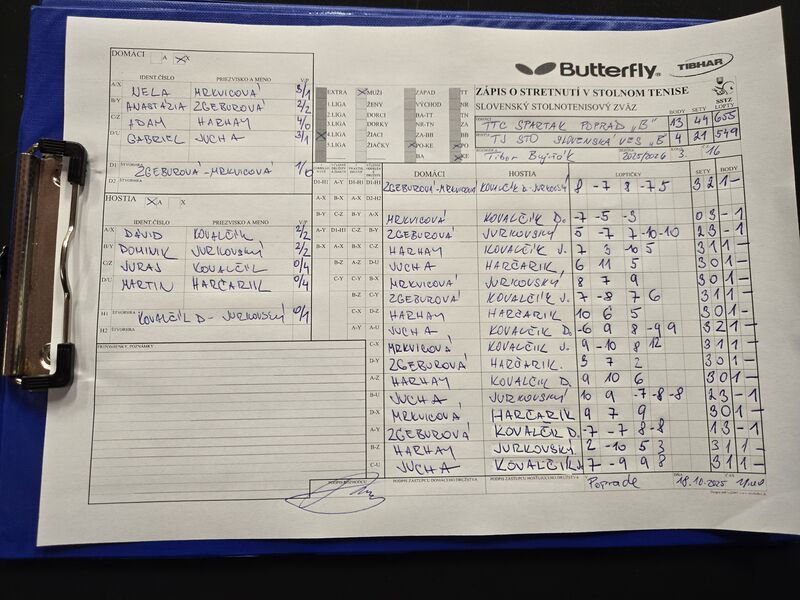 DOMÁCI A X
IDENT.ČÍSLO PRIEZVISKO A MENO V/P
A/X NELA MRKVICOVÁ 3/1
B/Y ANASTÁZIA ZGEBUROVÁ 2/2
C/Z ADAM HARHAY 4/0
D/U GABRIEL JUCHA 3/1
D1 ŠTVORHRA ZGEBUROVÁ-MRKVICOVÁ 1/0
D2
HOSTIA A X
IDENT.ČÍSLO PRIEZVISKO A MENO V/P
A/X DAVID KOVALČÍK 2/2
B/Y DOMINIK JURKOVSKÝ 2/2
C/Z JURAJ KOVALČÍK 0/4
D/U MARTIN HARČARIK 0/4
H1 ŠTVORHRA KOVALČÍK D- JURKOVSKÝ 0/1
H2 ŠTVORHRA
PRIPOMIENKY, POZNÁMKY
Butterfly TIBHAR
ZÁPIS O STRETNUTÍ V STOLNOM TENISE
SLOVENSKÝ STOLNOTENISOVÝ ZVÄZ
SSTZ
BODY SETY LOPTY
EXTRA MUŽI ZÁPAD TT
1.LIGA ŽENY VÝCHOD NR
2.LIGA DORCI BA-TT TN
3.LIGA DORKY NR-TN ZA
4.LIGA ŽIACI ZA-BB BB
5.LIGA ŽIAČKY PO-KE PO
BA KE
TTC SPARTAK POPRAD "B" 13 44 655
TJ STO SLOVENSKÁ VES "B" 4 21 549
Tibor 2025/2026 3. 16
DOMÁCI HOSTIA LOPTIČKY SETY BODY
ZGEBUROVÁ-MRKVICOVÁ KOVALČÍK D-JURKOVSKÝ 8 -7 8 -7 5 3 2 1 -
MRKVICOVÁ KOVALČÍK D. -7 -5 -3 0 3 - 1
ZGEBUROVÁ JURKOVSKÝ 5 -7 7 -10 -10 2 3 - 1
HARHAY KOVALČÍK J. 7 3 10 5 3 1 1 -
JUCHA HARČARIK 6 11 5 3 0 1 -
MRKVICOVÁ JURKOVSKÝ 8 7 9 3 0 1 -
ZGEBUROVÁ KOVALČÍK J. 7 -8 7 6 3 1 1 -
HARHAY HARČARIK 10 6 5 3 0 1 -
JUCHA KOVALČÍK D. -6 9 8 -9 9 3 2 1 -
MRKVICOVÁ KOVALČÍK J. 9 -10 8 12 3 1 1 -
ZGEBUROVÁ HARČARIK 3 7 2 3 0 1 -
HARHAY KOVALČÍK D. 9 10 6 3 0 1 -
JUCHA JURKOVSKÝ 10 9 -7 -8 -8 2 3 - 1
MRKVICOVÁ HARČARIK 9 7 9 3 0 1 -
ZGEBUROVÁ KOVALČÍK D. -7 -7 8 -8 1 3 - 1
HARHAY JURKOVSKÝ 2 -10 5 3 3 1 1 -
JUCHA KOVALČÍK J. 7 -9 9 8 3 1 1 -
PODPIS ROZHODCU PODPIS ZÁSTUPCU DOMÁCEHO DRUŽSTVA PODPIS ZÁSTUPCU HOSŤUJÚCEHO DRUŽSTVA
Poprade 18.10.2025